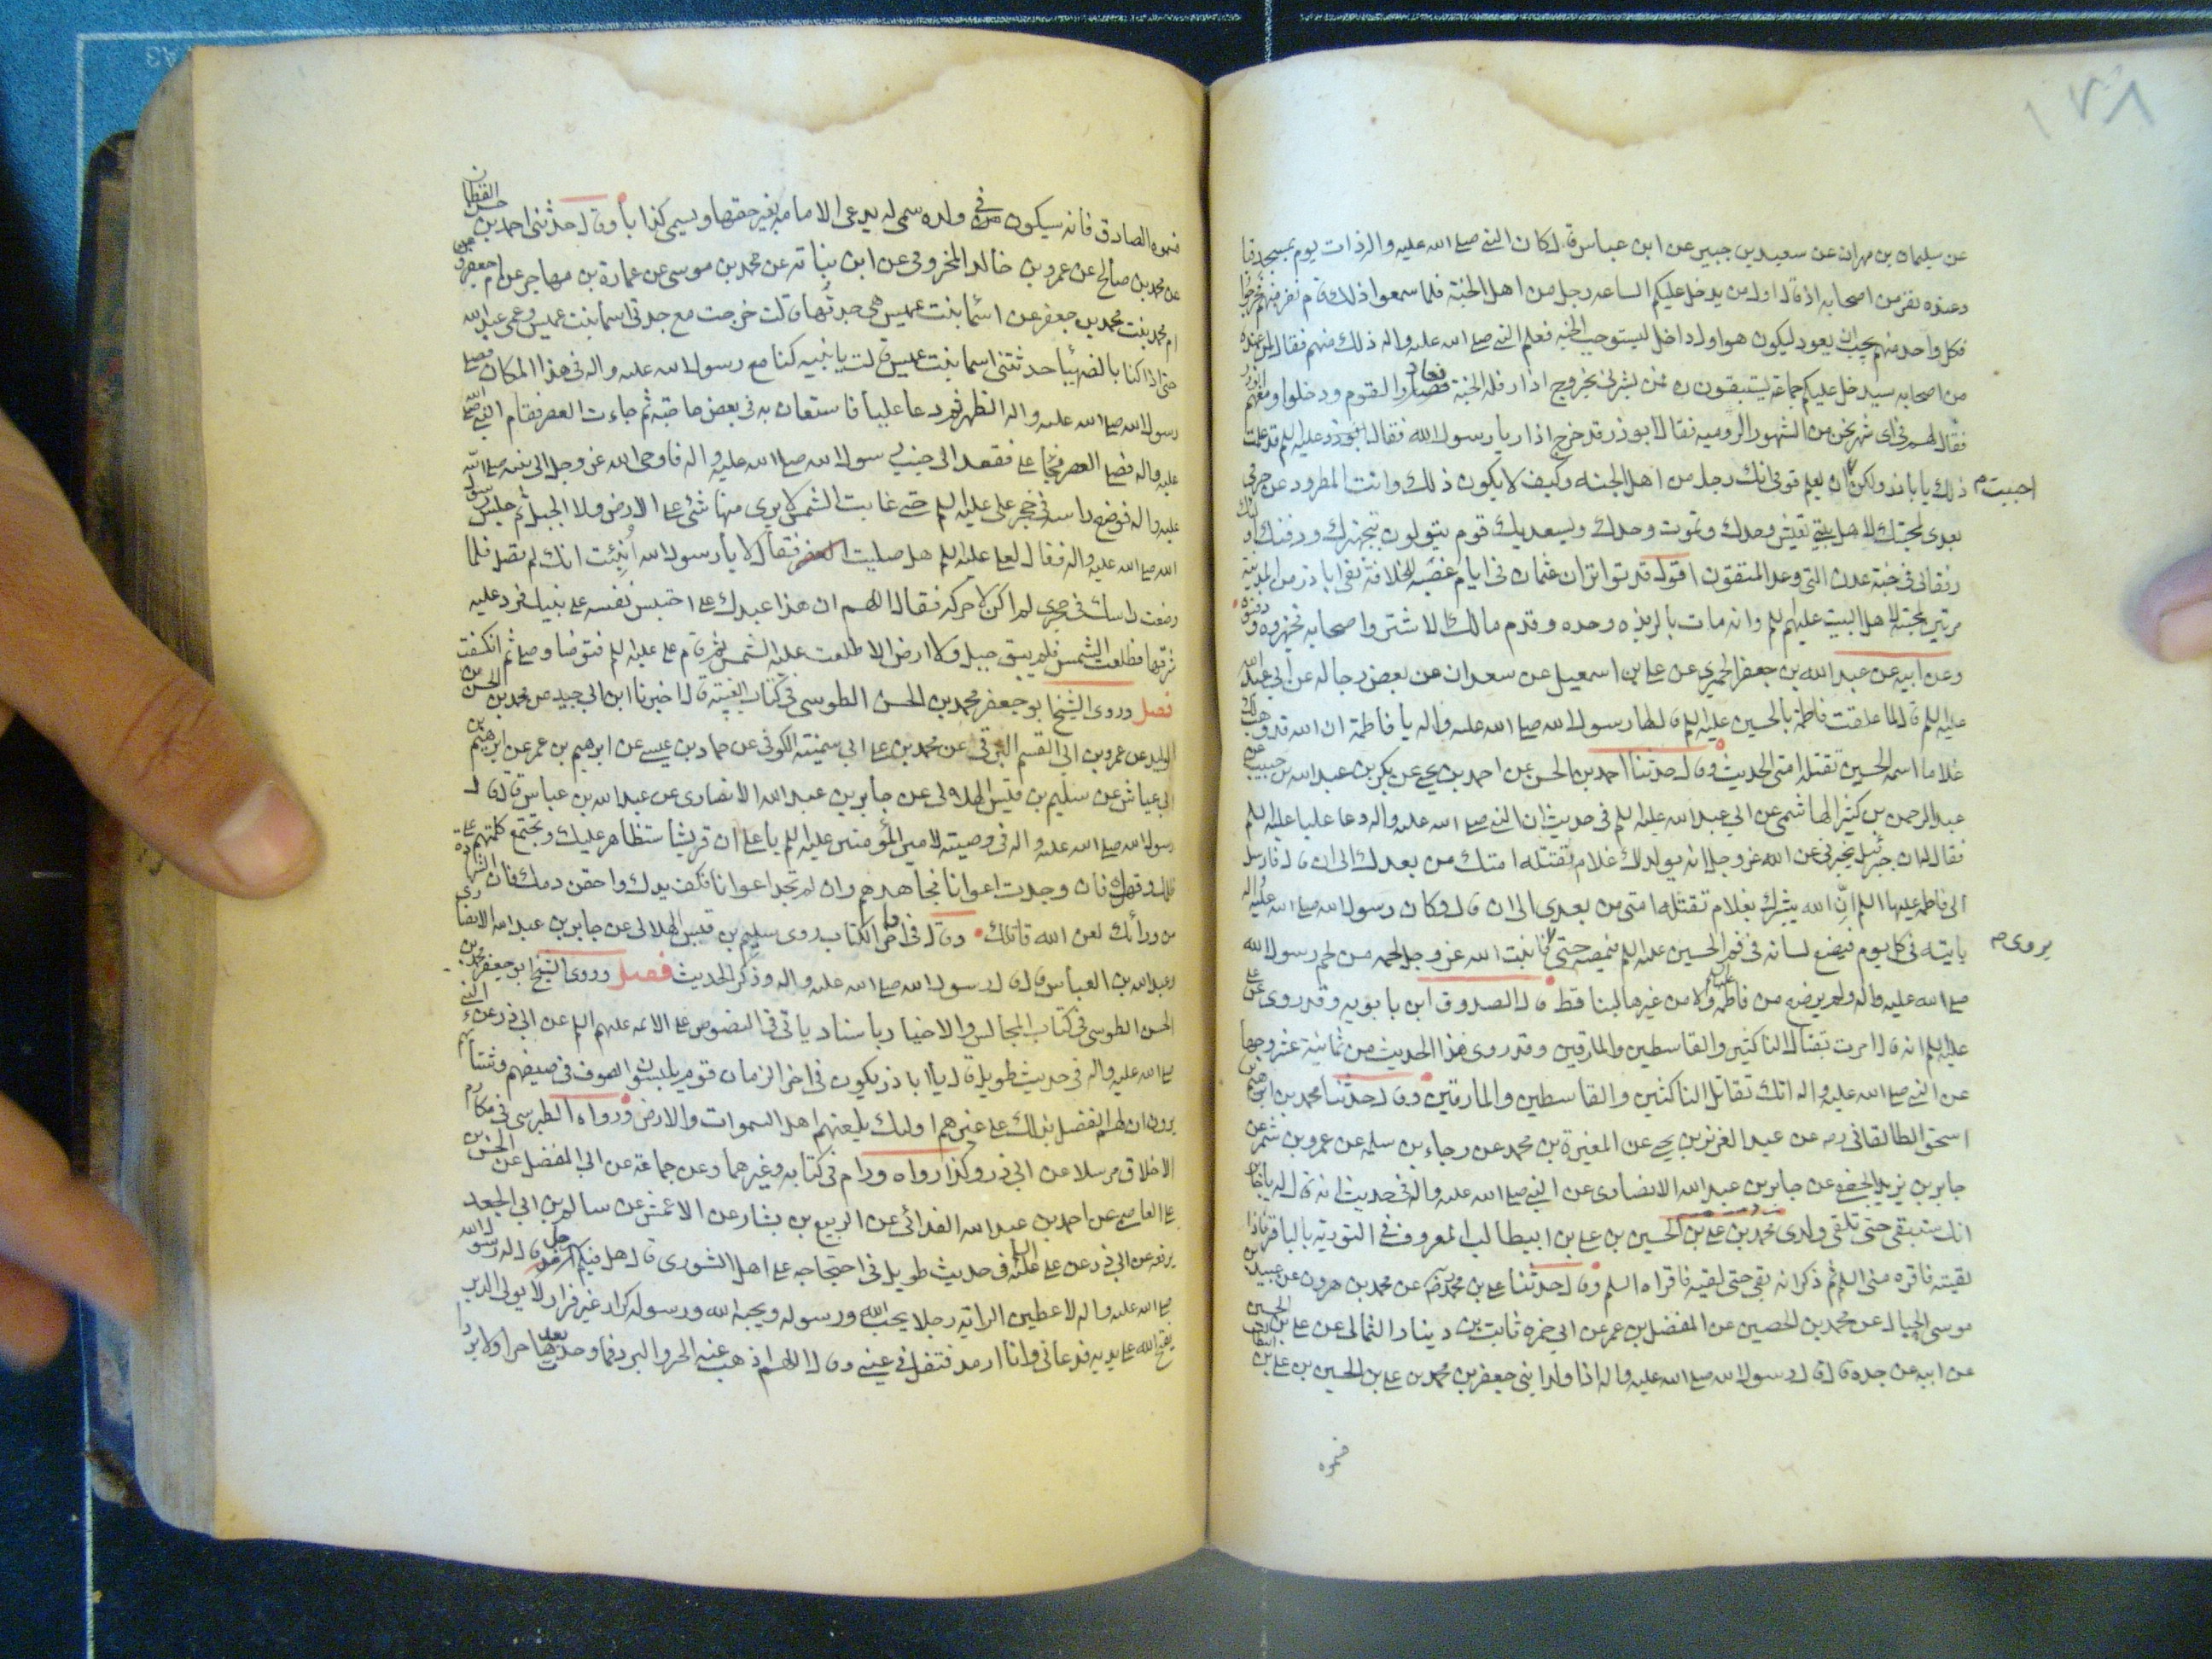 ١٣٨
عن سليمان بن مهران عن سعيد بن جبير عن ابن عباس قال كان النبي صلى الله عليه واله ذات يوم بمسجد قبا
وعنده نفر من اصحابه اذ قال اول من يدخل عليكم الساعه رجل من اهل الجنة فلما سمعوا ذلك قام نفر منهم فخرجوا
فكل واحد منهم يحب ان يعود ليكون هو اول داخل ليستوجب الجنه فعلم النبي صلى الله عليه واله ذلك منهم فقال لمن عنده
من اصحابه سيدخل عليكم جماعة يستبقون فمن بشرني بخروج اذار فله الجنة فعاد القوم ودخلوا ومعهم ابوذر
فقال لهم في اى شهر نحن من الشهور الروميه فقال ابوذر قد خرج اذار يا رسول الله فقال عليه السلم قد علمت
ذلك يا اباذر ولكن احببت ان يعلم قومى انك رجل من اهل الجنه وكيف لا يكون ذلك وانت المطرود عن حرمى
بعدى لمحبتك لاهل بيتى تعيش وحدك وتموت وحدك ويسعد بك قوم يتولون تجهيزك ودفنك اولئك
رفقائى فى جنة عدن التى وعد المتقون اقول قد تواتر ان عثمان فى ايام غصبه الخلافة نفى اباذر من المدينة
مرتين لمحبته لاهل البيت عليهم السلم وانه مات بالربذه وحده وقدم مالك الاشتر واصحابه فجهزوه ودفنوه
وعن ابيه عن عبد الله بن جعفر الحميرى عن على بن اسمعيل عن سعدان عن بعض رجاله عن ابى عبد الله
عليه السلم قال لما علقت فاطمة بالحسين عليه السلم قال لها رسول الله صلى الله عليه واله يا فاطمة ان الله قد وهب لك
غلاما اسمه الحسين تقتله امتى الحديث وقال حدثنا احمد بن الحسن عن احمد بن يحيى عن بكر بن عبد الله بن حبيب عن
عبد الرحمن بن كثير الهاشمى عن ابى عبد الله عليه السلم فى حديث ان النبي صلى الله عليه واله دعا عليا عليه السلم
فقال له ان جبرئيل يخبرنى عن الله عز وجل انه يولد لك غلام تقتله امتك من بعدك الى ان قال فارسل
الى فاطمه عليها السلم ان الله يبشرك بغلام تقتله امتى من بعدى الى ان قال وكان رسول الله صلى الله عليه واله
ياتيه فى كل يوم فيضع لسانه فى فم الحسين عليه السلم فيمصه حتى يروى فانبت الله عز وجل لحمه من لحم رسول الله
صلى الله عليه واله ولم يرضع من فاطمه عليها السلم ولا من غيرها لبنا قط قال الصدوق ابن بابويه وقد روى عن على
عليه السلم انه قال امرت بقتال الناكثين والقاسطين والمارقين وقد روى هذا الحديث من ثمانية عشر وجها
عن النبي صلى الله عليه واله انك تقاتل الناكثين والقاسطين والمارقين وقال حدثنا محمد بن ابرهيم بن
اسحق الطالقانى ره عن عبد العزيز بن يحيى عن المغيرة بن محمد عن رجاء بن سلمه عن عمرو بن شمر عن
جابر بن يزيد الجعفى عن جابر بن عبد الله الانصارى عن النبي صلى الله عليه واله فى حديث انه قال له يا جابر
انك ستبقى حتى تلقى ولدى محمد بن على بن الحسين بن على بن ابيطالب المعروف فى التورية بالباقر فاذا
لقيته فاقره منى السلم ثم ذكر انه بقى حتى لقيه فاقراه السلم وقال حدثنا على بن محمد عن محمد بن هرون عن عبيد الله بن
موسى الجبال عن محمد بن الحصين عن المفضل بن عمر عن ابى حمزه ثابت بن دينار الثمالى عن على بن الحسين
عن ابيه عن جده قال قال رسول الله صلى الله عليه واله اذا ولد ابنى جعفر بن محمد بن على بن الحسين بن على بن ابيطالب
فسموه
احببت م
يروى م
فسموه الصادق فانه سيكون فى ولده سمى له يدعى الامامه بغير حقها ويسمى كذابا وقال حدثنى احمد بن حسن القطان
عن محمد بن صالح عن عمرو بن خالد المخزومى عن ابن نباته عن محمد بن موسى عن عمارة بن مهاجر عن ام جعفر و
ام محمد بنت محمد بن جعفر عن اسما بنت عميس هى جدتها قالت خرجت مع جدتى اسما بنت عميس وعمى عبد الله
حتى اذا كنا بالضهيا حدثتنى اسما بنت عميس قالت يا بنيه كنا مع رسول الله صلى الله عليه واله فى هذا المكان فصلى
رسول الله صلى الله عليه واله الظهر ثم دعا عليا فاستعان به فى بعض حاجته ثم جاءت العصر فقام النبى صلى الله
عليه واله فصلى العصر فجاء على فقعد الى جنب رسول الله صلى الله عليه واله فاوحى الله عز وجل الى نبيه صلى الله
عليه واله فوضع راسه فى حجر على عليه السلم حتى غابت الشمس لا يرى منها شئ على الارض ولا الجبل ثم جلس رسول
الله صلى الله عليه واله فقال لعلى عليه السلم هل صليت العصر فقال لا يا رسول الله انبئت انك لم تصل فلما
وضعت راسك فى حجرى لم اكن لاحركه فقال اللهم ان هذا عبدك على احتبس نفسه على نبيك فرد عليه
شرقها فطلعت الشمس فلم يبق جبل ولا ارض الا طلعت عليه الشمس ثم قام على عليه السلم فتوضا وصلى ثم انكسفت
فصل وروى الشيخ ابو جعفر محمد بن الحسن الطوسى فى كتاب الغيبة قال اخبرنا ابن ابى جيد عن محمد بن الحسن بن
الوليد عن عمرو بن ابى القسم البرقى عن محمد بن على ابى سمينة الكوفى عن حماد بن عيسى عن ابرهيم بن عمر عن ابان بن
ابى عياش عن سليم بن قيس الهلالى عن جابر بن عبد الله الانصارى وعن عبد الله بن عباس قال قال
رسول الله صلى الله عليه واله فى وصيته لامير المؤمنين عليه السلم يا على ان قريشا ستظاهر عليك وتجتمع كلمتهم على
ظلمك وقهرك فان وجدت اعوانا فجاهدهم وان لم تجد اعوانا فكف يدك واحقن دمك فان الشهادة
من ورائك لعن الله قاتلك وقال فى اخر الكتاب روى سليم بن قيس الهلالى عن جابر بن عبد الله الانصارى
وعبد الله بن العباس قال قال رسول الله صلى الله عليه واله وذكر الحديث فصل وروى الشيخ ابو جعفر محمد بن
الحسن الطوسى فى كتاب المجالس والاخبار باسناد ياتى فى النصوص على الائمه عليهم السلم عن ابى ذر عن النبى
صلى الله عليه واله فى حديث طويل قال يا اباذر يكون فى اخر الزمان قوم يلبسون الصوف فى صيفهم وشتائهم
يرون ان لهم الفضل بذلك على غيرهم اولئك يلعنهم اهل السموات والارض ورواه الطبرسى فى مكارم
الاخلاق مرسلا عن ابى ذر وكذا رواه ورام فى كتابه وغيرهما وعن جماعة عن ابى المفضل عن الحسن بن
على العاصمى عن احمد بن عبد الله الغدانى عن الربيع بن بشار عن الاعمش عن سالم بن ابى الجعد
يرفعه عن ابى ذر عن على عليه السلم فى حديث طويل فى احتجاجه على اهل الشورى قال هل فيكم رجل قال له رسول الله
صلى الله عليه واله لاعطين الراية رجلا يحب الله ورسوله ويحبه الله ورسوله كرار غير فرار لا يولى الدبر
يفتح الله على يديه فدعانى وانا ارمد فتفل فى عينى وقال اللهم اذهب عنه الحر والبرد فما وجدت بعدها حرا ولا بردا